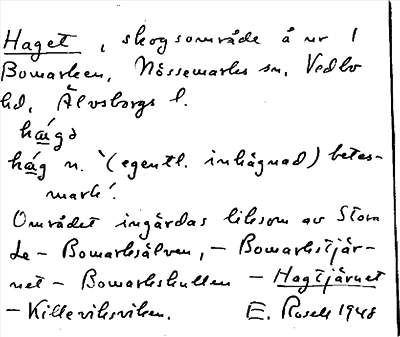 Haget, skogsområde å nr 1
Bomarken, Nössemarks sn, Vedbo
hd, Älvsborgs l.
hágə
hág n. '(egentl. inhägnad) betes-
mark'.
Området ingärdas liksom av Stora
Le – Bomarksälven, – Bomarkstjär-
net – Bomarkskullen – Hagtjärnet
– Killeviksviken. E. Rosell 1948